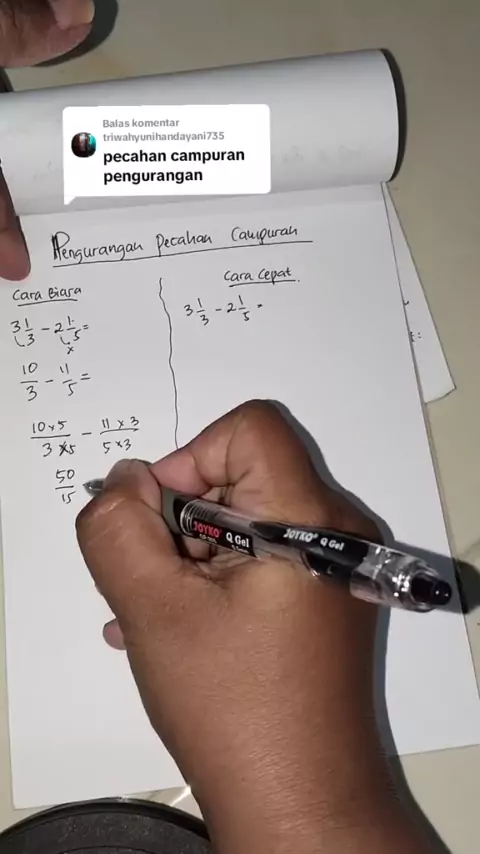 Balas komentar
triwahyunihandayani735
pecahan campuran
pengurangan
Pengurangan Pecahan Campuran
Cara Biasa
3 1/3 - 2 1/5 =
x
10/3 - 11/5 =
10 x 5 / 3 x 5 - 11 x 3 / 5 x 3
50/15
Cara Cepat
3 1/3 - 2 1/5 =
JOYKO Q Gel
JOYKO Q Gel